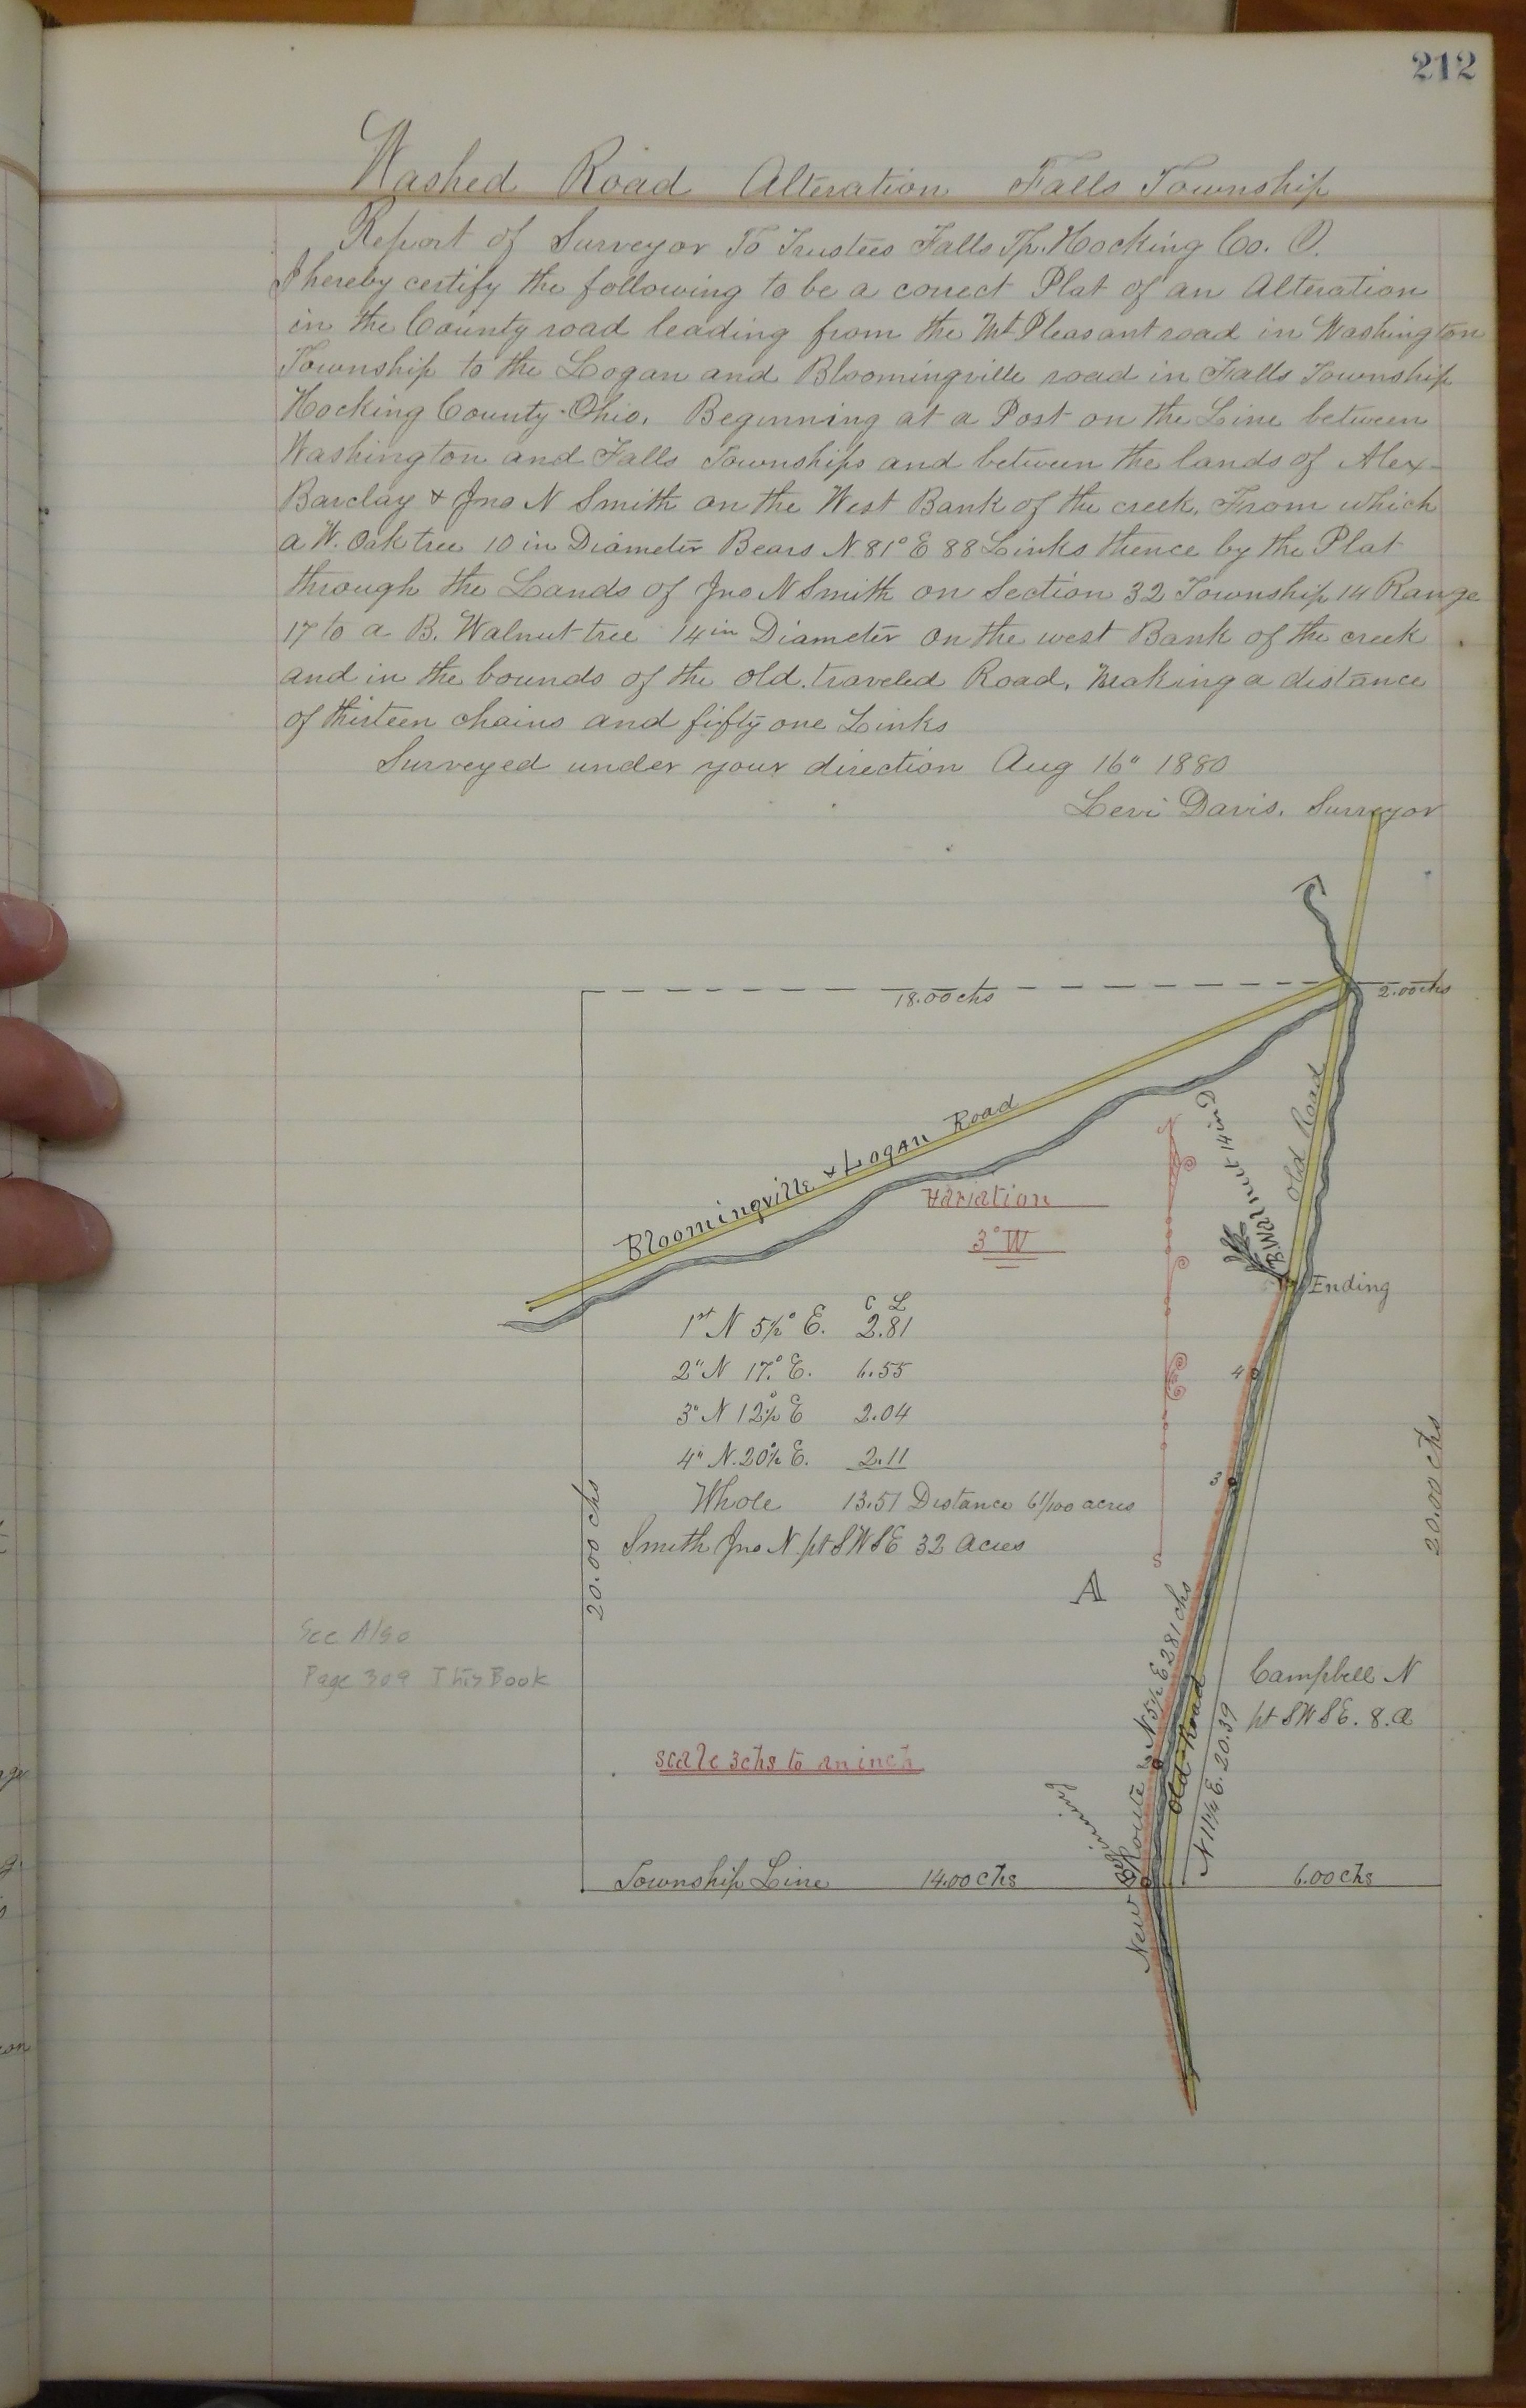 212
Washed Road Alteration Falls Township
Report of Surveyor To Trustees Falls Tp. Hocking Co. O.
I hereby certify the following to be a correct Plat of an Alteration
in the County road leading from the Mt Pleasant road in Washington
Township to the Logan and Bloomingville road in Falls Township
Hocking County Ohio. Beginning at a Post on the Line between
Washington and Falls Townships and between the lands of Alex-
Barclay & Jno N Smith on the West Bank of the creek, From which
a W. Oak tree 10 in Diameter Bears N 81° E 88 Links thence by the Plat
through the Lands of Jno N Smith on Section 32 Township 14 Range
17 to a B. Walnut tree 14 in Diameter on the west Bank of the creek
and in the bounds of the old traveled Road, Making a distance
of thirteen chains and fifty one Links
Surveyed under your direction Aug 16" 1880
Levi Davis. Surveyor
18.00 chs
2.00 chs
Bloomingville & Logan Road
Old Road
B. Walnut 14 in D
N
Variation
3° W
Ending
C L
1st N 5½° E. 2.81
2" N 17° E. 6.55
3" N 12½ E 2.04
4" N. 20½ E. 2.11
Whole 13.51 Distance 61/100 acres
Smith Jno N pt SW SE 32 Acres
4
3
S
20.00 chs
20.00 chs
A
See Also
Page 309 This Book
Campbell N
pt SW SE. 8. a
N 5½ E 2.81 chs
scale 3chs to an inch
Old Road
N 11½ E. 20.39
Beginning
New Route
Township Line 14.00 chs
6.00 chs